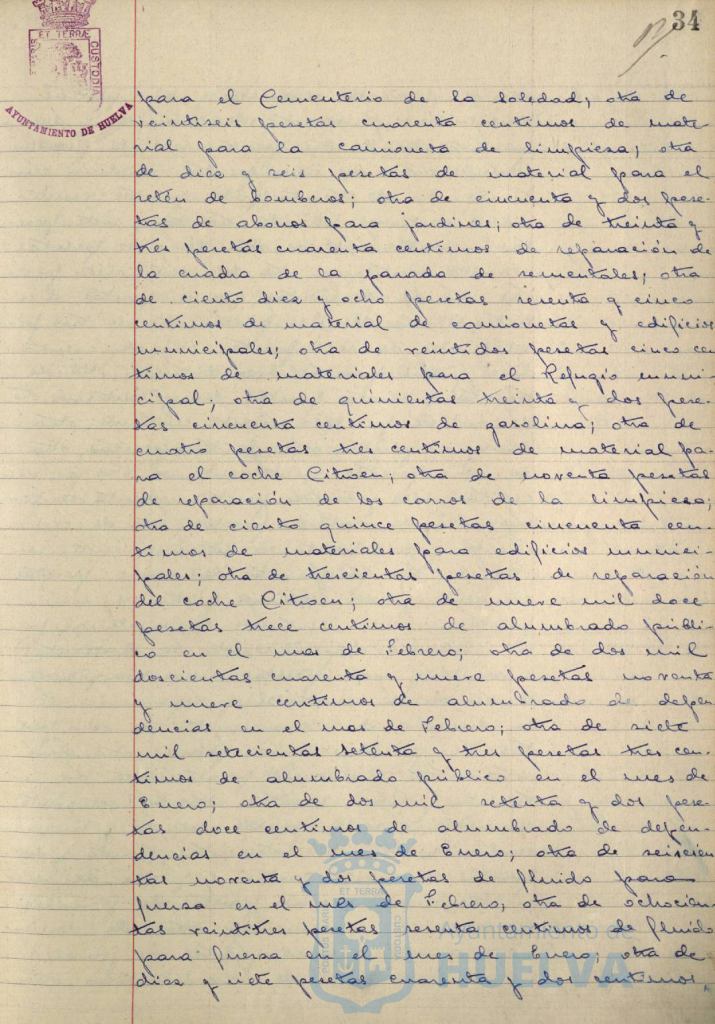 34
ET TERRÆ
CUSTODIA
AYUNTAMIENTO DE HUELVA
para el Cementerio de la Soledad; otra de
veintiseis pesetas cuarenta centimos de mate-
rial para la camioneta de limpieza; otra
de diez y seis pesetas de material para el
retén de bomberos; otra de cincuenta y dos pese-
tas de abonos para jardines; otra de treinta y
tres pesetas cuarenta centimos de reparación de
la cuadra de la parada de sementales; otra
de ciento diez y ocho pesetas sesenta y cinco
centimos de material de camionetas y edificios
municipales; otra de veintidos pesetas cinco cen
timos de materiales para el Refugio muni-
cipal; otra de quinientas treinta y dos pese-
tas cincuenta centimos de gasolina; otra de
cuatro pesetas tres centimos de material pa-
ra el coche Citroen; otra de noventa pesetas
de reparación de los carros de la limpieza;
otra de ciento quince pesetas cincuenta cen-
timos de materiales para edificios munici-
pales; otra de trescientas pesetas de reparación
del coche Citroen; otra de nueve mil doce
pesetas trece centimos de alumbrado públi-
co en el mes de Febrero; otra de dos mil
doscientas cuarenta y nueve pesetas noventa
y nueve centimos de alumbrado de depen
dencias en el mes de Febrero; otra de siete
mil setecientas setenta y tres pesetas tres cen-
timos de alumbrado público en el mes de
Enero; otra de dos mil setenta y dos pese-
tas doce centimos de alumbrado de depen-
dencias en el mes de Enero; otra de seiscien
tas noventa y dos pesetas de fluido para
fuerza en el mes de Febrero; otra de ochocien-
tas veintitres pesetas sesenta centimos de fluido
para fuerza en el mes de Enero; otra de
diez y siete pesetas cuarenta y dos centimos
ET TERRÆ
CUSTODIA
Ayuntamiento de
HUELVA